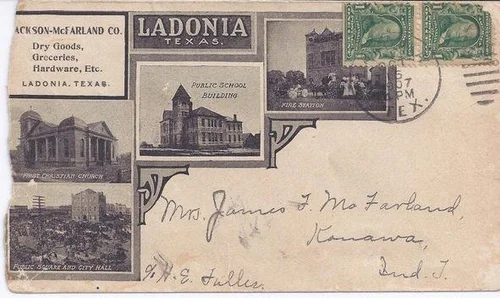 JACKSON-McFARLAND CO.
Dry Goods,
Groceries,
Hardware, Etc.
LADONIA, TEXAS.
LADONIA
TEXAS.
PUBLIC SCHOOL
BUILDING
FIRE STATION
FIRST CHRISTIAN CHURCH
PUBLIC SQUARE AND CITY HALL
07
PM
TEX.
Mrs. James F. McFarland,
Konawa,
Ind. T.
c/o H. E. Fuller.